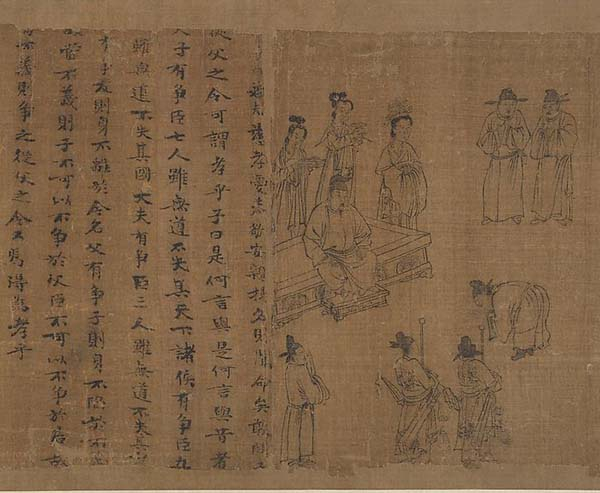 夫慈孝愛恭敬安親揚名則聞命矣敢問
從父之令可謂孝乎子曰是何言與是何言與昔者
天子有争臣七人雖無道不失其天下諸侯有争臣
雖無道不失其國大夫有争臣三人雖無道不失其
争友則身不離於令名父有争子則身不陷於不
故當不義則子不可以不争於父臣不可以不争於君故
當不義則争之從父之令又焉得為孝乎